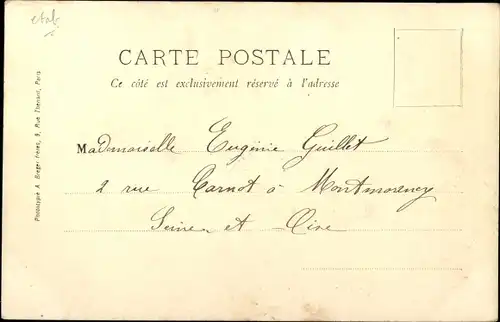 etab
CARTE POSTALE
Ce côté est exclusivement réservé à l'adresse
Mademoiselle Eugénie Guillet
2 rue Carnot à Montmorency
Seine et Oise
Phototypie A. Breger Frères, 9, Rue Thénard, Paris